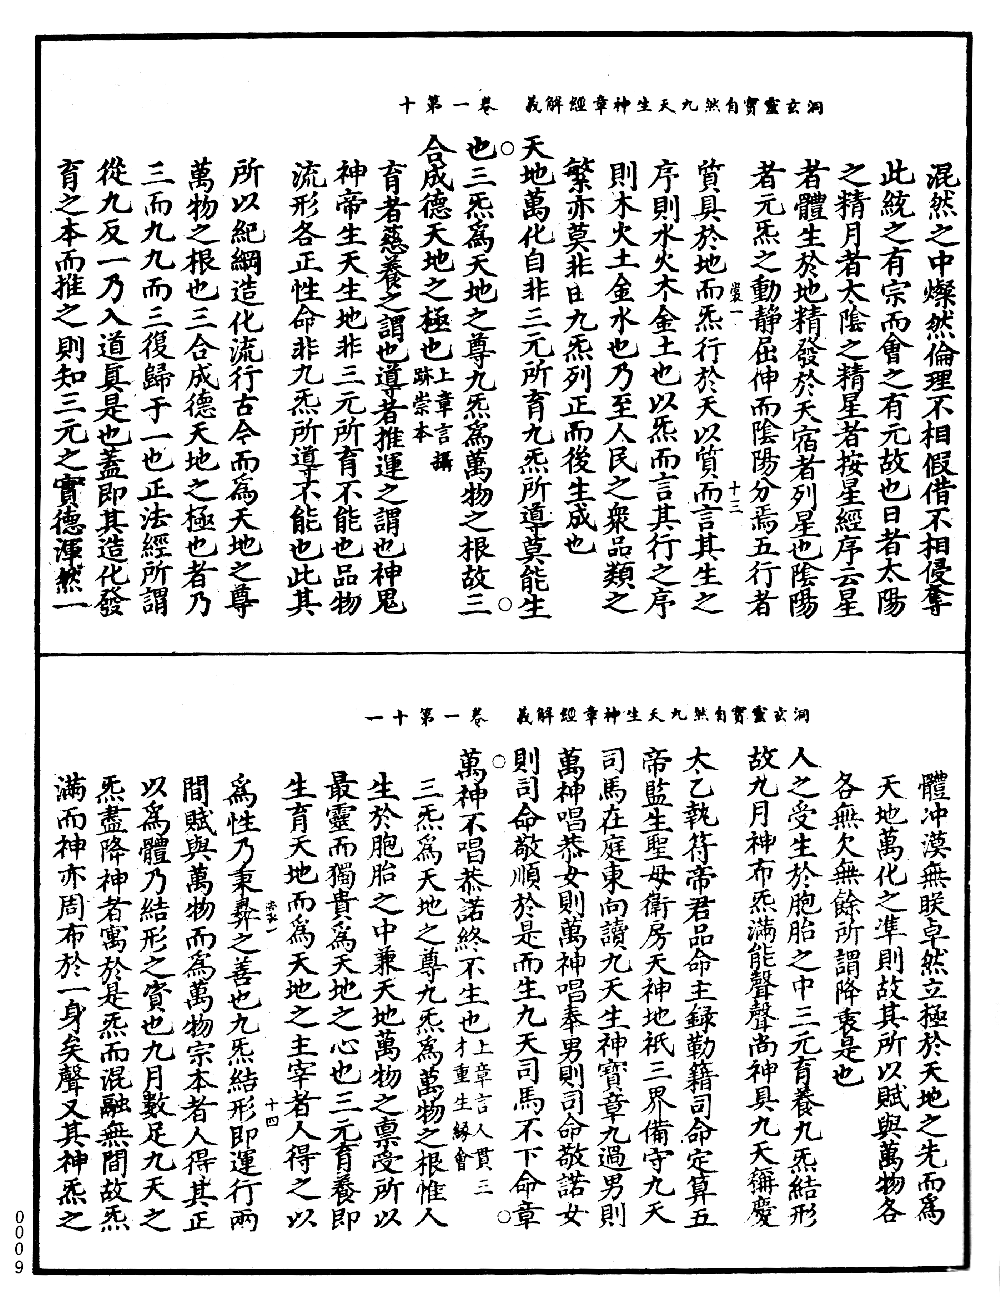 洞玄靈寶自然九天生神章經解義　卷一第十
混然之中燦然倫理不相假借不相侵奪
此統之有宗而會之有元故也日者太陽
之精月者太陰之精星者按星經序云星
者體生於地精發於天宿者列星也陰陽
者元炁之動靜屈伸而陰陽分焉五行者
質具於地而炁行於天以質而言其生之
序則水火木金土也以炁而言其行之序
則木火土金水也乃至人民之衆品類之
繁亦莫非曰九炁列正而後生成也
天地萬化自非三元所育九炁所導莫能生
也○三炁爲天地之尊九炁爲萬物之根故三○
合成德天地之極也上章言攝跡崇本
育者慈養之謂也導者推運之謂也神鬼
神帝生天生地非三元所育不能也品物
流形各正性命非九炁所導不能也此其
所以紀綱造化流行古今而爲天地之尊
萬物之根也三合成德天地之極也者乃
三而九九而三復歸于一也正法經所謂
從九反一乃入道眞是也蓋即其造化發
育之本而推之則知三元之實德渾然一
十三
洞玄靈寶自然九天生神章經解義　卷一第十一
體冲漠無朕卓然立極於天地之先而爲
天地萬化之準則故其所以賦與萬物各
各無欠無餘所謂降衷是也
人之受生於胞胎之中三元育養九炁結形
故九月神布炁滿能聲聲尚神具九天稱慶
太乙執符帝君品命主録勒籍司命定算五
帝監生聖母衛房天神地祇三界備守九天
司馬在庭東向讀九天生神寶章九過男則
萬神唱恭女則萬神唱奉男則司命敬諾女
則司命敬順於是而生九天司馬不下命章
○萬神不唱恭諾終不生也上章言人貫三才重生緣會○
三炁爲天地之尊九炁爲萬物之根惟人
生於胞胎之中兼天地萬物之稟受所以
最靈而獨貴爲天地之心也三元育養即
生育天地而爲天地之主宰者人得之以
爲性乃秉彝之善也九炁結形即運行兩
間賦與萬物而爲萬物宗本者人得其正
以爲體乃結形之資也九月數足九天之
炁盡降神者寓於是炁而混融無間故炁
滿而神亦周布於一身矣聲又其神炁之
十四
0009